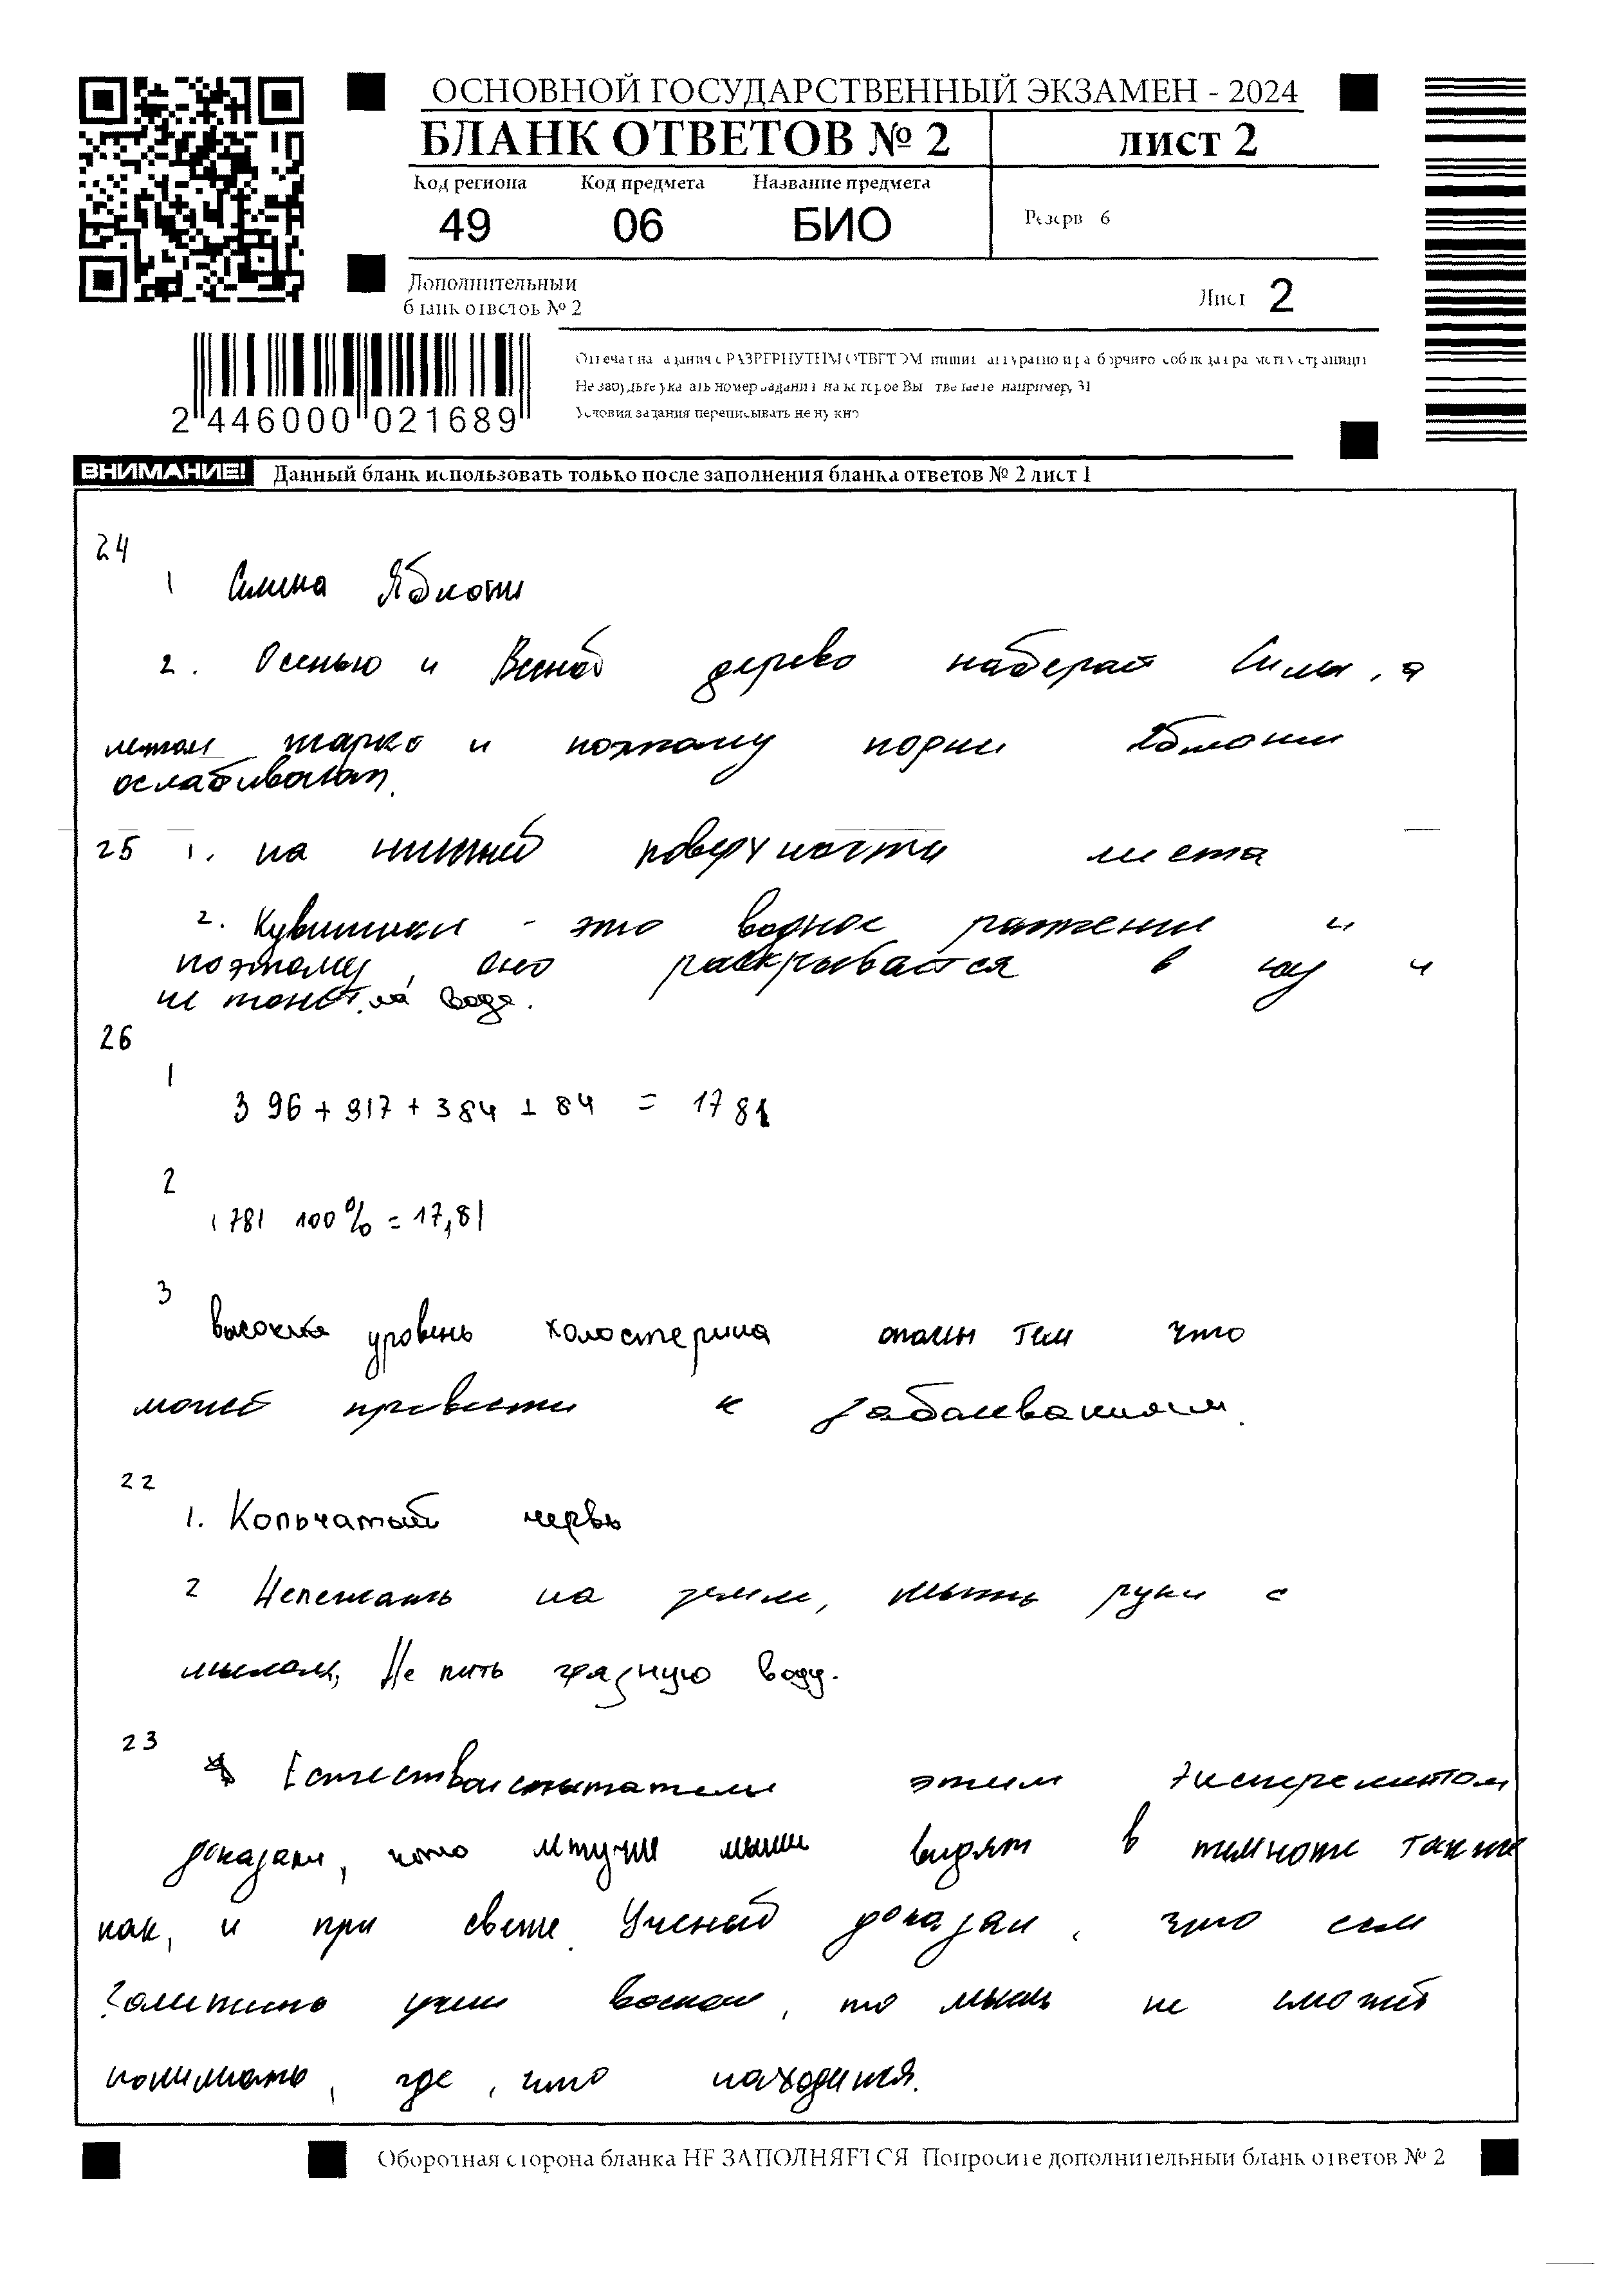 ОСНОВНОЙ ГОСУДАРСТВЕННЫЙ ЭКЗАМЕН - 2024
БЛАНК ОТВЕТОВ № 2
лист 2
Код региона Код предмета Название предмета
49 06 БИО
Резерв 6
Дополнительный
бланк ответов № 2
Лист 2
2 446000 021689
Условия задания переписывать не нужно
ВНИМАНИЕ! Данный бланк использовать только после заполнения бланка ответов № 2 лист 1
24
1 Симена Яблони
2. Осенью и Весной дерево наберает Силы, а
летом жарко и поэтому корни Яблони
ослабивают.
25 1. на нижней поверхности листа
2. Кувшинки - это водное растение и
поэтому, оно раскрывается в и
не тонет на воде.
26
1
396 + 917 + 384 + 84 = 1781
2
1781 100% = 17,81
3
уровень холостерина опасны тем что
может привести к заболеваниям.
22
1. Кольчатый червь
2 на земле, мыть руки с
мылом, Не пить грязную воду.
23
Естествоиспытатели этим эксперементом
доказали, что летучие мыши видят в темноте также
как, и при свете. Ученый доказал, что если
залепить уши воском, то мышь не сможет
понимать, где, что находится.
Оборотная сторона бланка НЕ ЗАПОЛНЯЕТСЯ Попросите дополнительный бланк ответов № 2